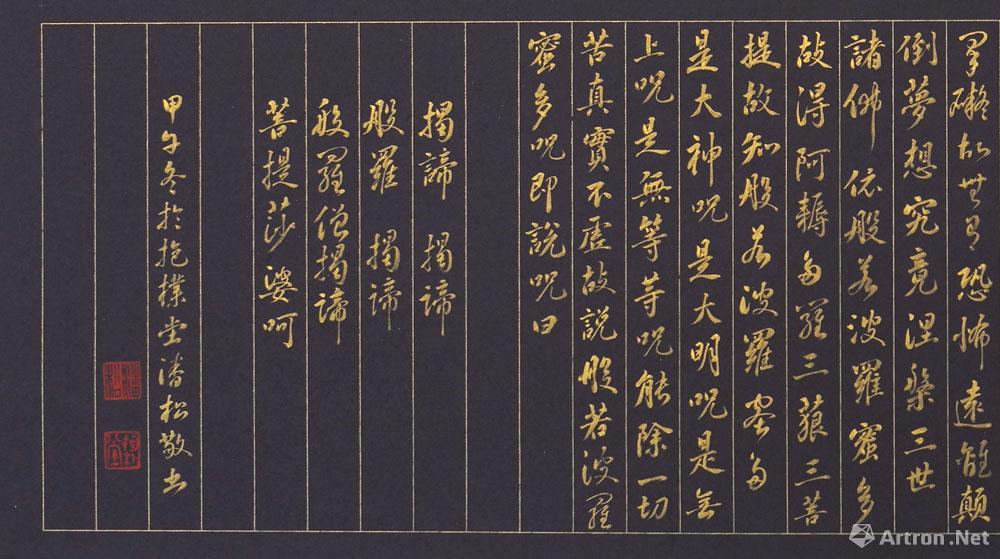 罣礙故無有恐怖遠離顛
倒夢想究竟涅槃三世
諸佛依般若波羅蜜多
故得阿耨多羅三藐三菩
提故知般若波羅蜜多
是大神呪是大明呪是無
上呪是無等等呪能除一切
苦真實不虛故說般若波羅
蜜多呪即說呪曰
揭諦 揭諦
般羅 揭諦
般羅僧揭諦
菩提莎婆呵
甲午冬於抱樸堂潘松敬書
Artron.Net